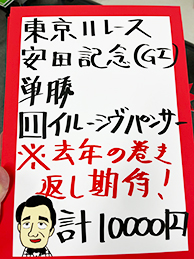 東京11レース
安田記念(GI)
単勝
11イルーシヴパンサー
※去年の巻き
返し期待!
計10000円